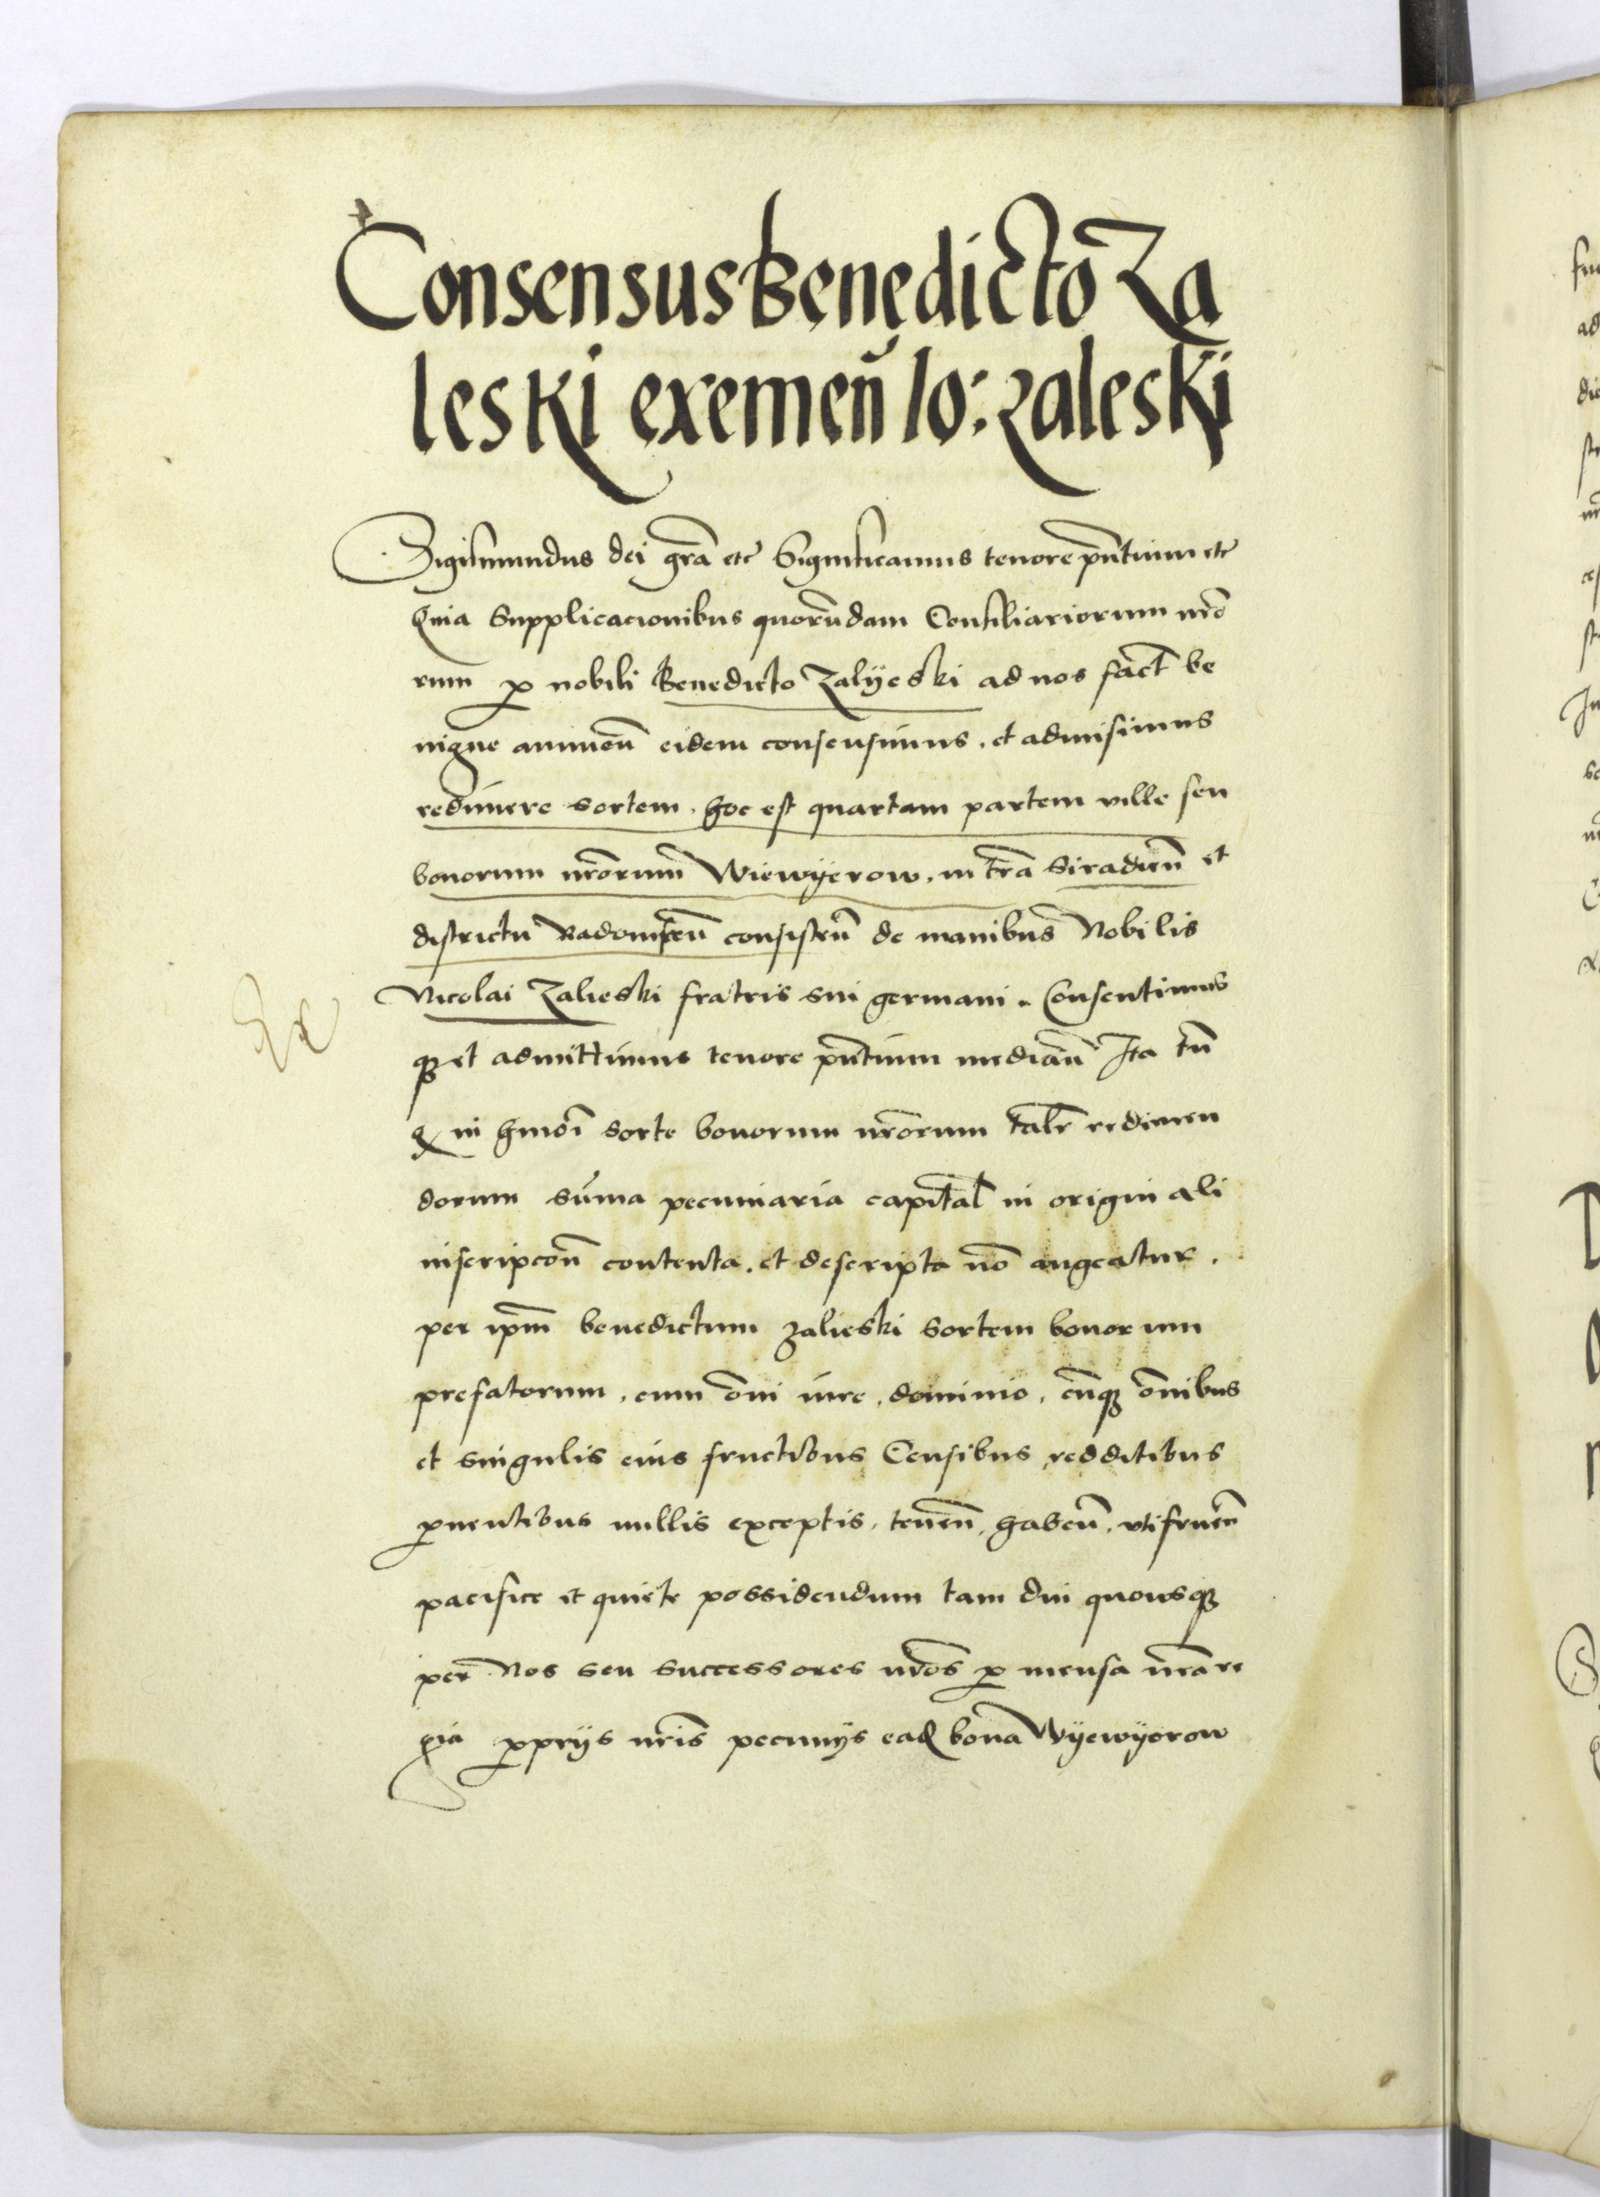 Consensus Benedicto Za
leski exemeñ Io: zaleski
Sigismundus dei grã etc Significamus tenore pñtium etc
Quia Supplicacionibus quorũdam Consiliariorum nrõ
rum p nobili Benedicto Zalÿeski ad nos fact be
nigne annueñ eidem consensimus . et admisimus
redimere sortem . hoc est quartam partem ville seu
bonorum nrõrum Wiewÿerow . in trã Siradieñ et
districtu Radomscen̄ consisteñ de manibus Nobilis
Nicolai Zalieski fratris sui germani . Consentimus
qz et admittimus tenore pñtium mediañ Ita tñ
q in hmõi sorte bonorum nrõrum talr̃ redimen
dorum sũma pecuniaria capital in originali
inscripcoñ contenta . et descripta nõ augeatur .
per ipm̃ benedictum zalieski sortem bonorum
prefatorum . cum õni iure . dominio . cũqz õnibus
et singulis eius fructibus Censibus redditibus
puentibus nullis exceptis . teneñ . habeñ . vtifrueñ
pacifice et quiete possidendum tam diu quousqz
per Nos seu successores nrõs p mensa nrã re
gia pprijs nrĩs pecunijs ead bona Wÿewÿerow